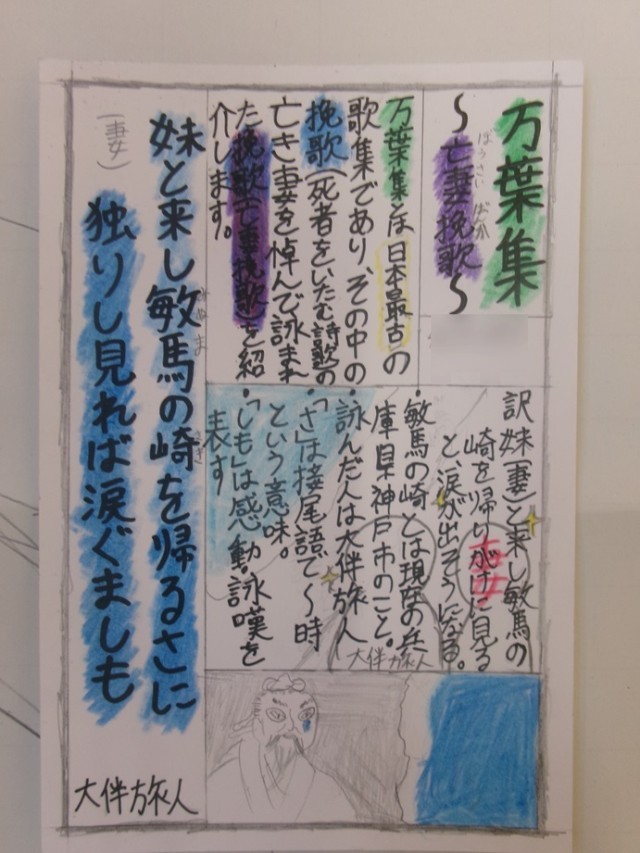 万葉集
～亡妻挽歌～
ぼうさい ばんか
万葉集とは日本最古の
歌集であり、その中の
挽歌(死者をいたむ詩歌)の
亡き妻を悼んで詠まれ
た挽歌(亡妻挽歌)を紹
介します。
訳 妹(妻)と来し敏馬の
崎を帰りがけに見る
と、涙が出そうになる。
・敏馬の崎とは現在の兵
庫県神戸市のこと。
・詠んだ人は大伴旅人
・「さ」は接尾語で～時
という意味。
・「しも」は感動・詠嘆を
表す
妻
大伴旅人
妹と来し敏馬の崎を帰るさに
みぬま
さき
(妻)
独りし見れば涙ぐましも
大伴旅人